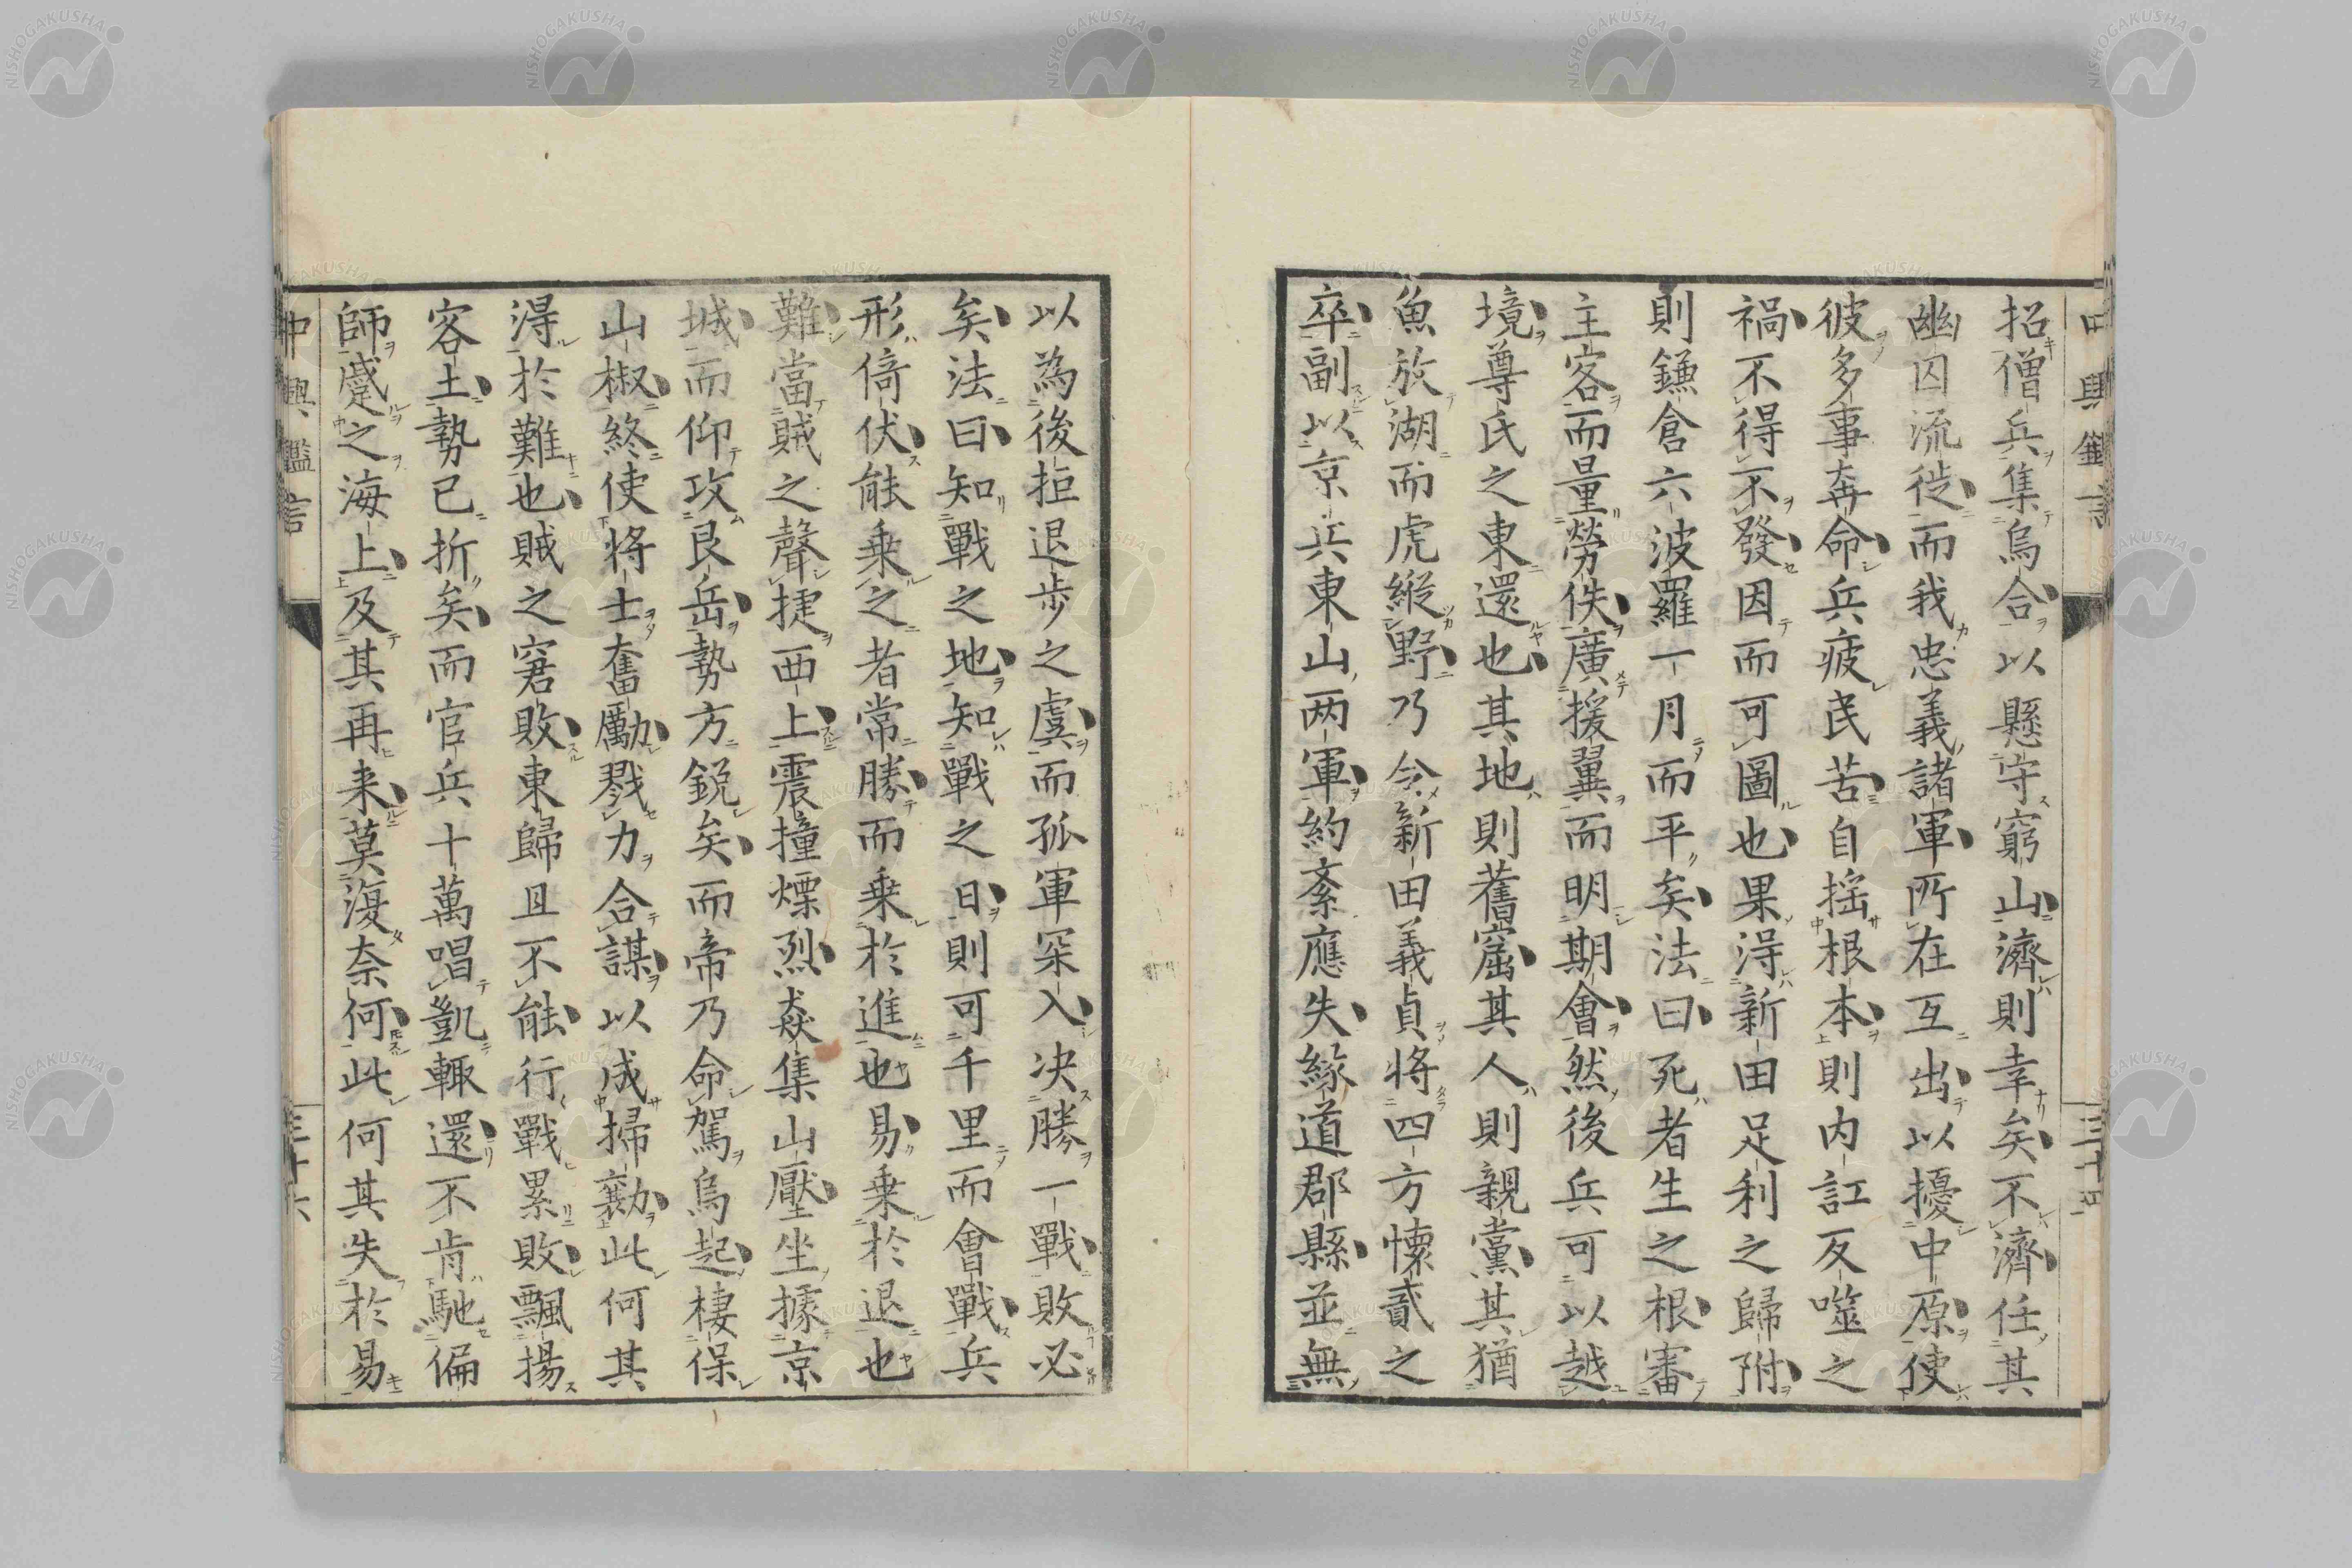 中興鑑言
三十四
招僧兵集烏合以懸守窮山濟則幸矣不濟任其
幽囚流徙而我忠義諸軍所在互出以擾中原使
彼多事奔命兵疲民苦自揺根本則内訌反噬之
禍不得不發因而可圖也果得新田足利之歸附
則鎌倉六波羅一月而平矣法曰死者生之根審
主客而量勞佚廣援翼而明期會然後兵可以越
境尊氏之東還也其地則舊窟其人則親黨其猶
魚放湖而虎縱野乃令新田義貞将四方懷貳之
卒副以京兵東山两軍約紊應失縁道郡縣並無
以為後拒退歩之虞而孤軍深入决勝一戰敗必
矣法曰知戰之地知戰之日則可千里而會戰兵
形倚伏能乗之者常勝而乗於進也易乗於退也
難當賊之聲捷西上震撞煙烈猋集山壓坐據京
城而仰攻艮岳勢方鋭矣而帝乃命駕烏起棲保
山椒終使将士奮勵戮力合謀以成掃勷此何其
得於難也賊之窘敗東歸且不能行戰累敗飄揚
客土勢已折矣而官兵十萬唱凱輙還不肯馳偏
師蹙之海上及其再来莫復奈何此何其失於易
中興鑑言
三十六
NISHOGAKUSHA